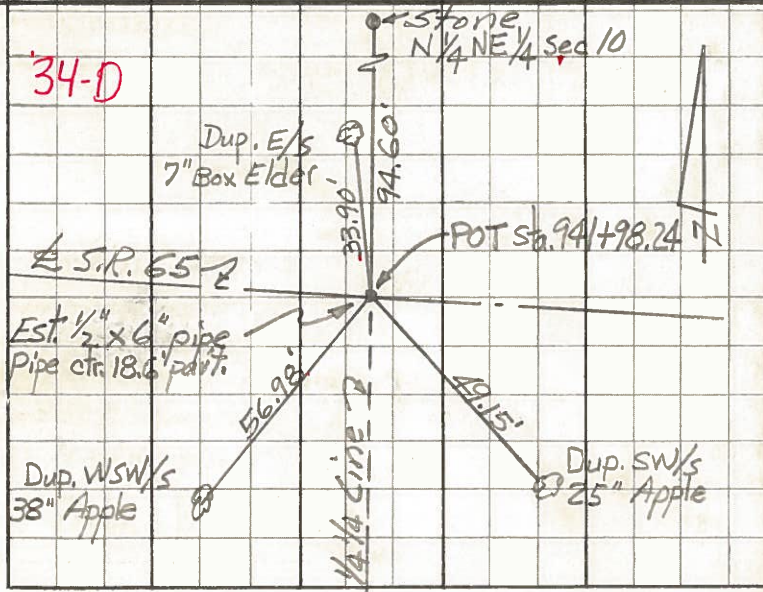 '34-D
Stone
N 1/4 NE 1/4 Sec 10
Dup. E/s
7" Box Elder
33.90'
94.60'
POT Sta. 941+98.24
N
℄ S.R. 65
Est. 1/2" x 6" pipe
Pipe ctr. 18.6' pav't.
56.98'
49.15'
Dup. WSW/s
38" Apple
Dup. SW/s
25" Apple
1/4 1/4 Line